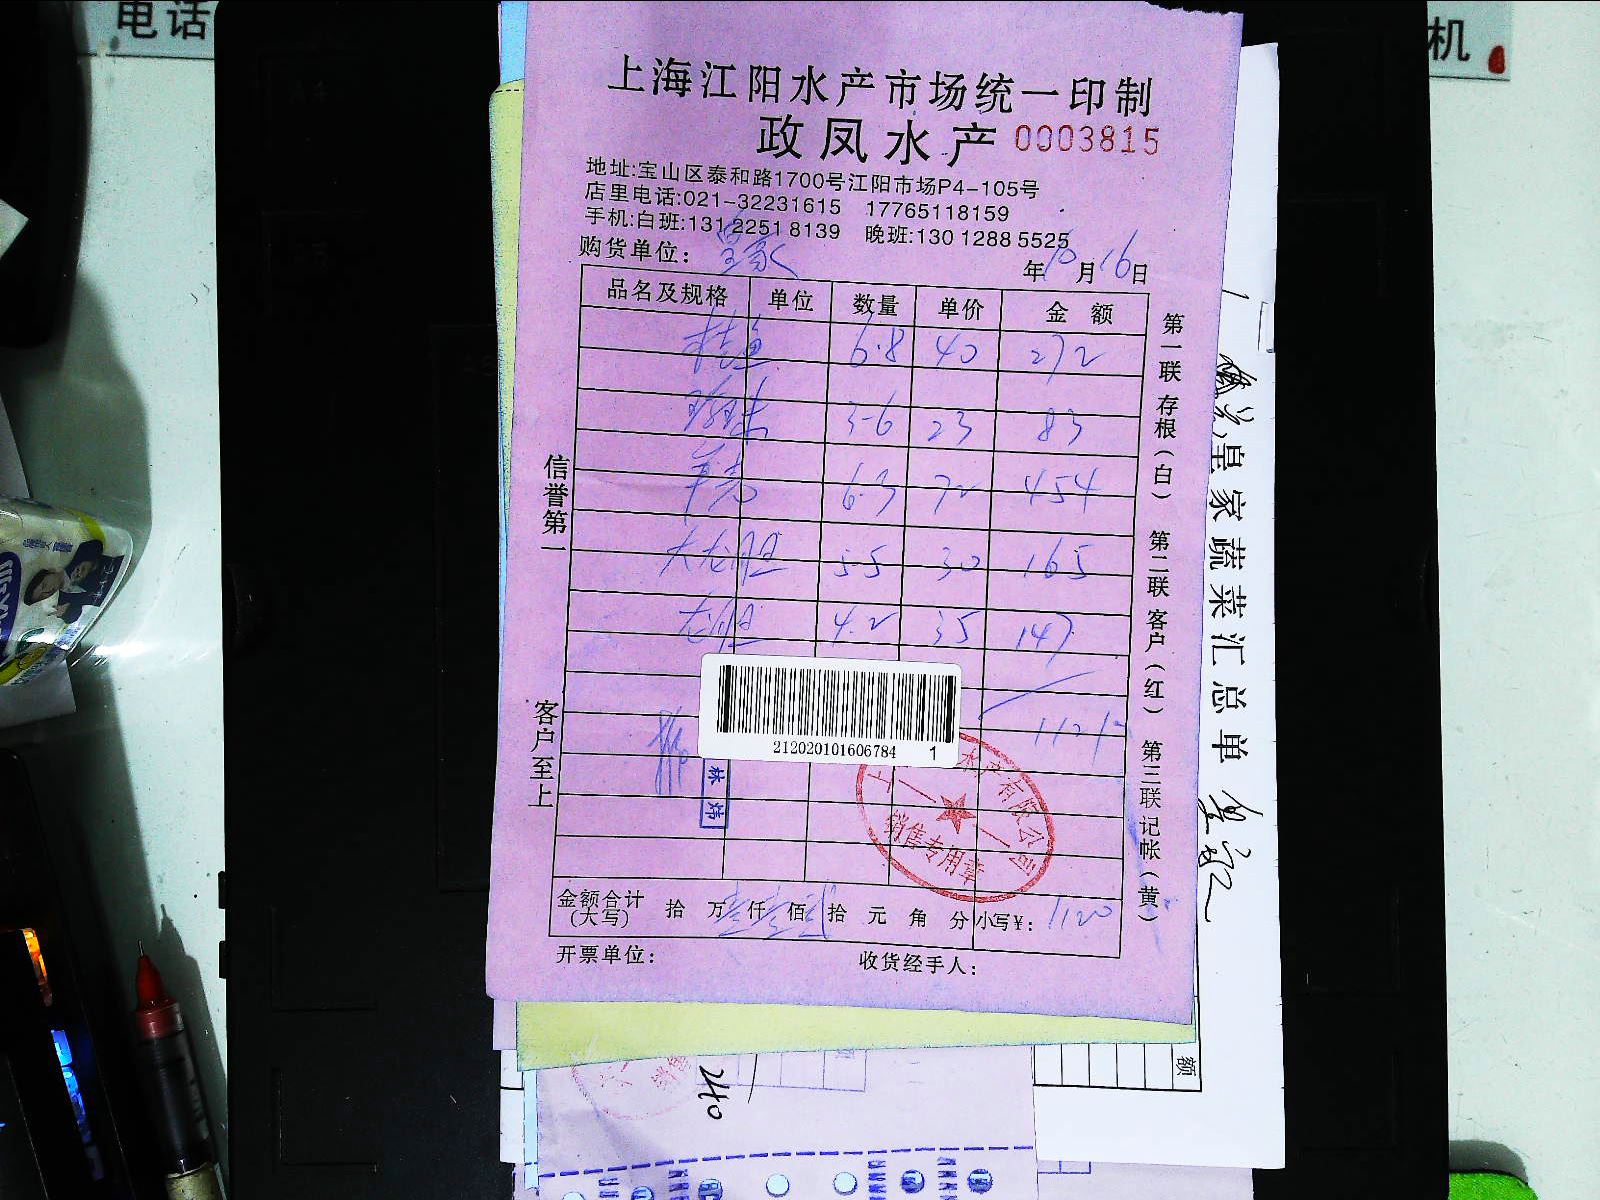 电话
机
上海江阳水产市场统一印制
政凤水产 0003815
地址:宝山区泰和路1700号江阳市场P4-105号
店里电话:021-32231615 17765118159
手机:白班:131 2251 8139 晚班:130 1288 5525
购货单位: 皇家 年10月16日
品名及规格 单位 数量 单价 金额
桂鱼 6.8 40 272
珍珠 3.6 23 83
6.3 72 454
5.5 30 165
4.2 35 147
1121
212020101606784 1
林炜
水产有限公司
销售专用章
金额合计(大写) 拾 万 壹 仟 壹 佰 贰 拾 元 角 分 小写¥: 1120
开票单位: 收货经手人:
信誉第一
客户至上
第一联存根(白) 第二联客户(红) 第三联记帐(黄)
皇家蔬菜汇总单
额
240